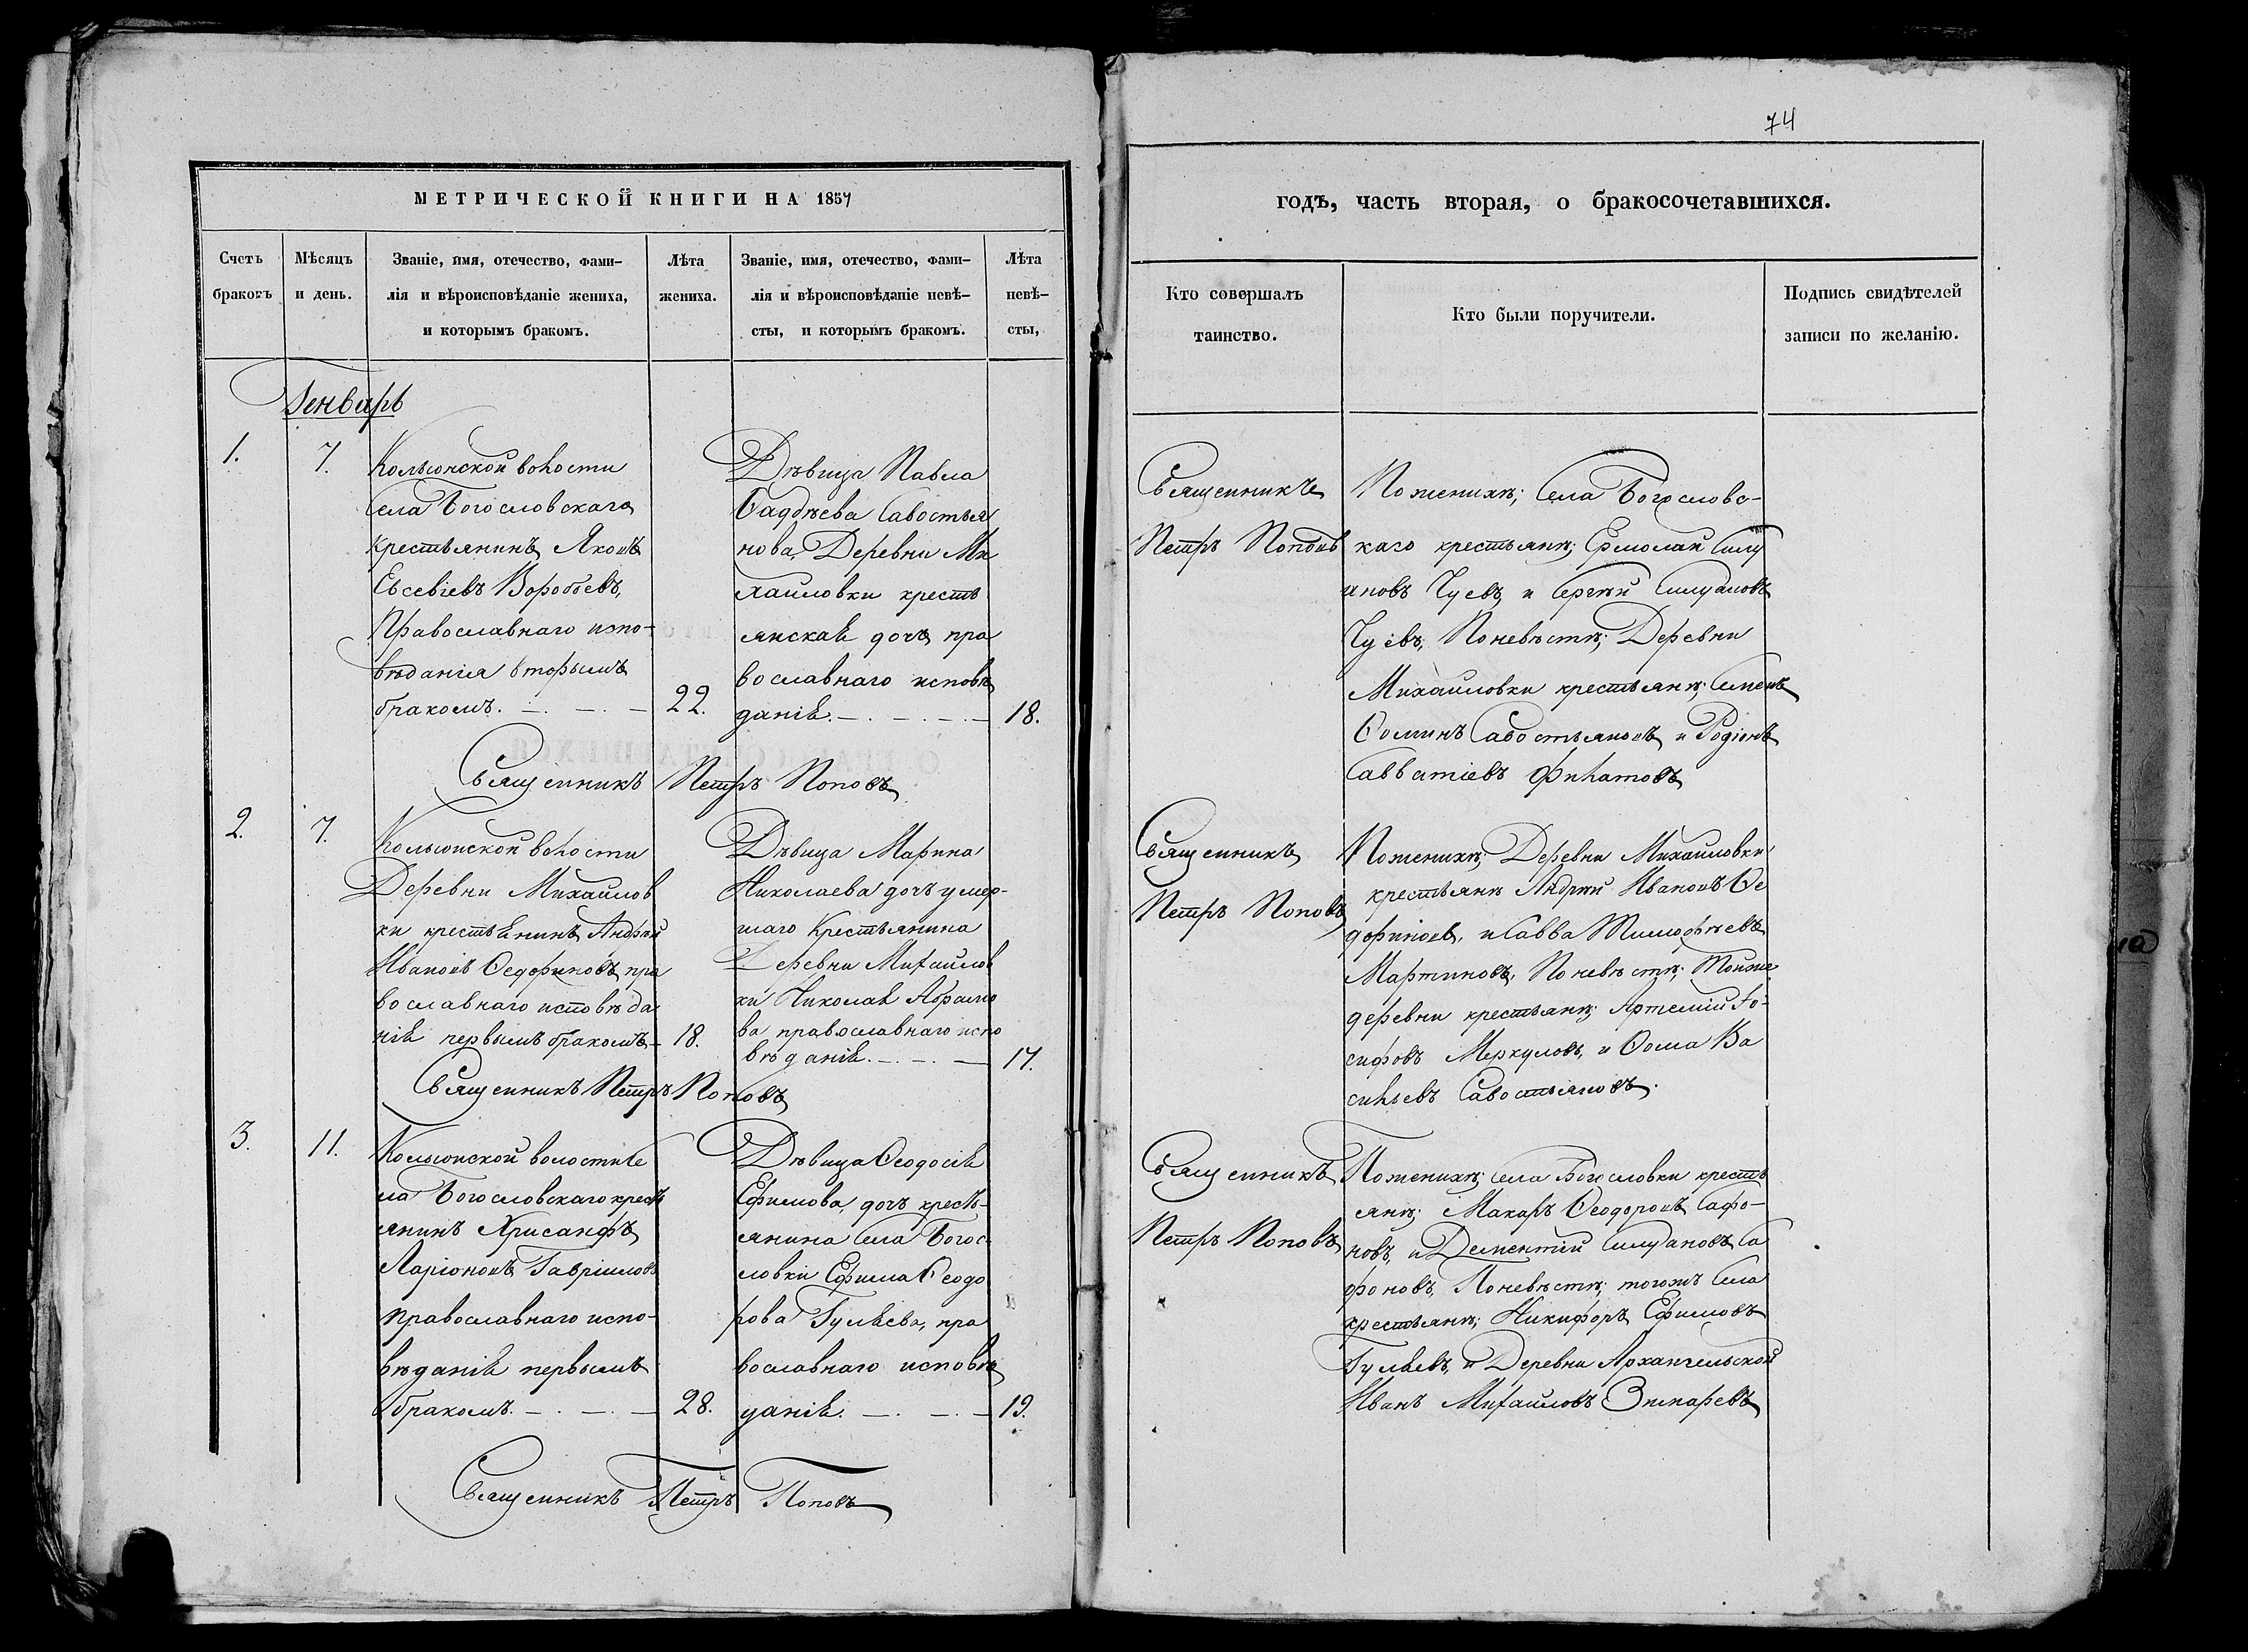 74
МЕТРИЧЕСКОЙ КНИГИ НА 1857
годъ, часть вторая, о бракосочетавшихся.
Счетъ браковъ
Мѣсяцъ и день.
Званіе, имя, отечество, фами-
лія и вѣроисповѣданіе жениха,
и которымъ бракомъ.
Лѣта жениха.
Званіе, имя, отечество, фами-
лія и вѣроисповѣданіе невѣ-
сты, и которымъ бракомъ.
Лѣта невѣ-
сты,
Кто совершалъ
таинство.
Кто были поручители.
Подпись свидѣтелей
записи по желанію.
Генварь
1.
7.
волости
села Богословскаго
крестьянинъ Яковъ
Евсевіевъ Воробьевъ,
Православнаго испо-
вѣданія вторымъ
бракомъ.
22.
Дѣвица Павла
Ѳаддѣева Савостья
нова, Деревни Ми
хаиловки кресть
янская дочь пра
вославнаго исповѣ
данія.
18.
Священникъ Петръ Поповъ
Священникъ
Петръ Поповъ
По женихѣ; села Богословс-
каго крестьянѣ; Ермолай Силу
ановъ Чуевъ, и Сергѣй Силуановъ
Чуевъ, По невѣстѣ; Деревни
Михаиловки крестьянѣ; Семенъ
Ѳоминъ Савостьяновъ и Родіонъ
Савватіевъ Филатовъ
2.
7.
волости
Деревни Михаилов
ки крестьянинъ Андрей
Ивановъ Ѳедориновъ, пра
вославнаго исповѣда
нія первымъ бракомъ
18.
Дѣвица Марина
Николаева дочь умер-
шаго Крестьянина
Деревни Михаилов
ки Николая Абрамо
ва православнаго испо
вѣданія.
17.
Священникъ Петръ Поповъ
Священникъ
Петръ Поповъ
По женихѣ; Деревни Михаиловки
крестьянѣ Андрей Ивановъ Ѳе
дориновъ, и Савва Тимофѣевъ
Мартиновъ, По невѣстѣ; Тойже
деревни крестьянѣ; Артемій Іо-
сифовъ Меркуловъ, и Ѳома Ва
сильевъ Савостьяновъ.
3.
11.
волости Се
ла Богословскаго кресть
янинъ Хрисанфъ
Ларіоновъ Гавріиловъ
православнаго испо-
вѣданія первымъ
бракомъ.
28.
Дѣвица Ѳеодосія
Ефимова, дочь кресть-
янина Села Богос-
ловки Ефима Ѳеодо
рова Гуляева, пра
вославнаго исповѣ
данія.
19.
Священникъ Петръ Поповъ
Священникъ
Петръ Поповъ
По женихѣ; Села Богословки кресть
янѣ; Макаръ Ѳеодоровъ Сафо-
новъ, и Дементій Силуановъ Са
фоновъ, По невѣстѣ; тогожъ Села
крестьянѣ; Никифоръ Ефимовъ
Гуляевъ, и Деревни Архангельской
Иванъ Михаиловъ